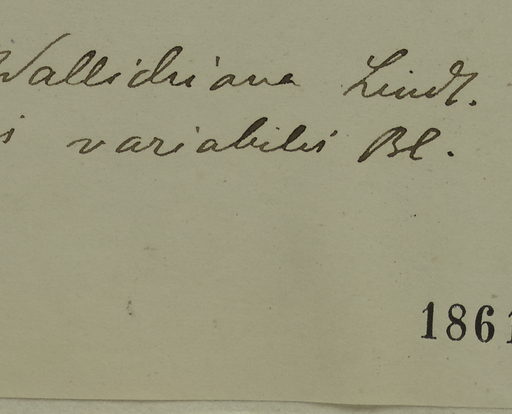 Wallichiana Lindl.
is variabilis Bl.
1861